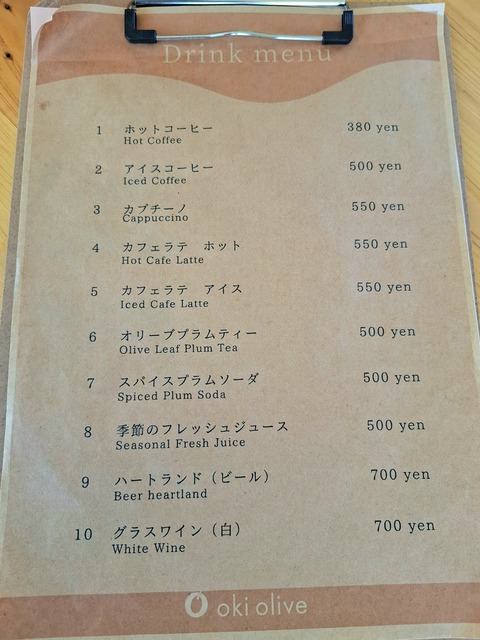 Drink menu
1 ホットコーヒー 380 yen
Hot Coffee
2 アイスコーヒー 500 yen
Iced Coffee
3 カプチーノ 550 yen
Cappuccino
4 カフェラテ ホット 550 yen
Hot Cafe Latte
5 カフェラテ アイス 550 yen
Iced Cafe Latte
6 オリーブプラムティー 500 yen
Olive Leaf Plum Tea
7 スパイスプラムソーダ 500 yen
Spiced Plum Soda
8 季節のフレッシュジュース 500 yen
Seasonal Fresh Juice
9 ハートランド（ビール） 700 yen
Beer heartland
10 グラスワイン（白） 700 yen
White Wine
oki olive